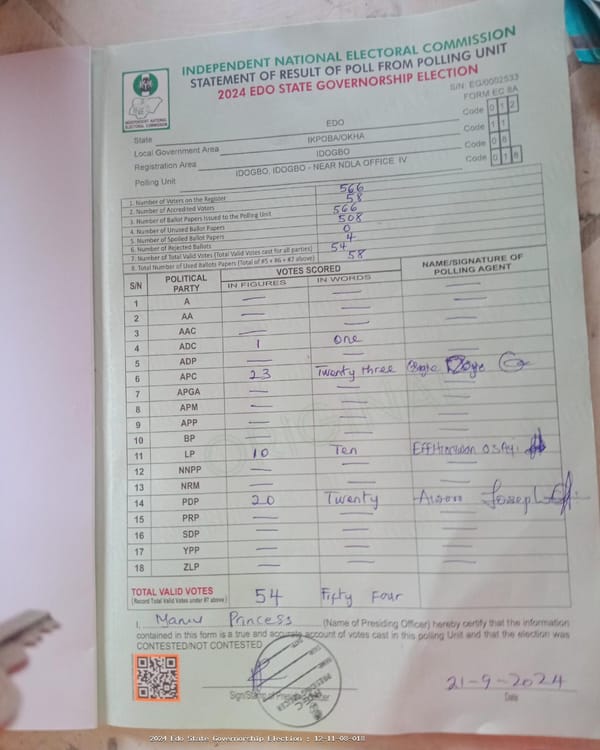 INDEPENDENT NATIONAL ELECTORAL COMMISSION
STATEMENT OF RESULT OF POLL FROM POLLING UNIT
2024 EDO STATE GOVERNORSHIP ELECTION
S/N: EG/0002533
FORM EC 8A
INDEPENDENT NATIONAL ELECTORAL COMMISSION
State EDO Code 0 1 2
Local Government Area IKPOBA/OKHA Code 1 1
Registration Area IDOGBO Code 0 8
Polling Unit IDOGBO, IDOGBO - NEAR NDLA OFFICE IV Code 0 1 8
1. Number of Voters on the Register 566
2. Number of Accredited Voters 58
3. Number of Ballot Papers Issued to the Polling Unit 566
4. Number of Unused Ballot Papers 508
5. Number of Spoiled Ballot Papers 0
6. Number of Rejected Ballots 4
7. Number of Total Valid Votes (Total Valid Votes cast for all parties) 54
8. Total Number of Used Ballots Papers (Total of #5 + #6 + #7 above) 58
S/N POLITICAL PARTY VOTES SCORED NAME/SIGNATURE OF POLLING AGENT
IN FIGURES IN WORDS
1 A — —
2 AA — — —
3 AAC — —
4 ADC 1 one
5 ADP — — —
6 APC 23 Twenty three
7 APGA — — —
8 APM — — —
9 APP — — —
10 BP — — —
11 LP 10 Ten
12 NNPP — — —
13 NRM — — —
14 PDP 20 Twenty Joseph
15 PRP — — —
16 SDP — — —
17 YPP — — —
18 ZLP — — —
TOTAL VALID VOTES 54 Fifty Four
(Record Total Valid Votes under #7 above)
I, Princess (Name of Presiding Officer) hereby certify that the information
contained in this form is a true and accurate account of votes cast in this polling Unit and that the election was
CONTESTED/NOT CONTESTED
21-9-2024
Sign/Stamp of Presiding Officer Date
2024 Edo State Governorship Election : 12-11-08-018